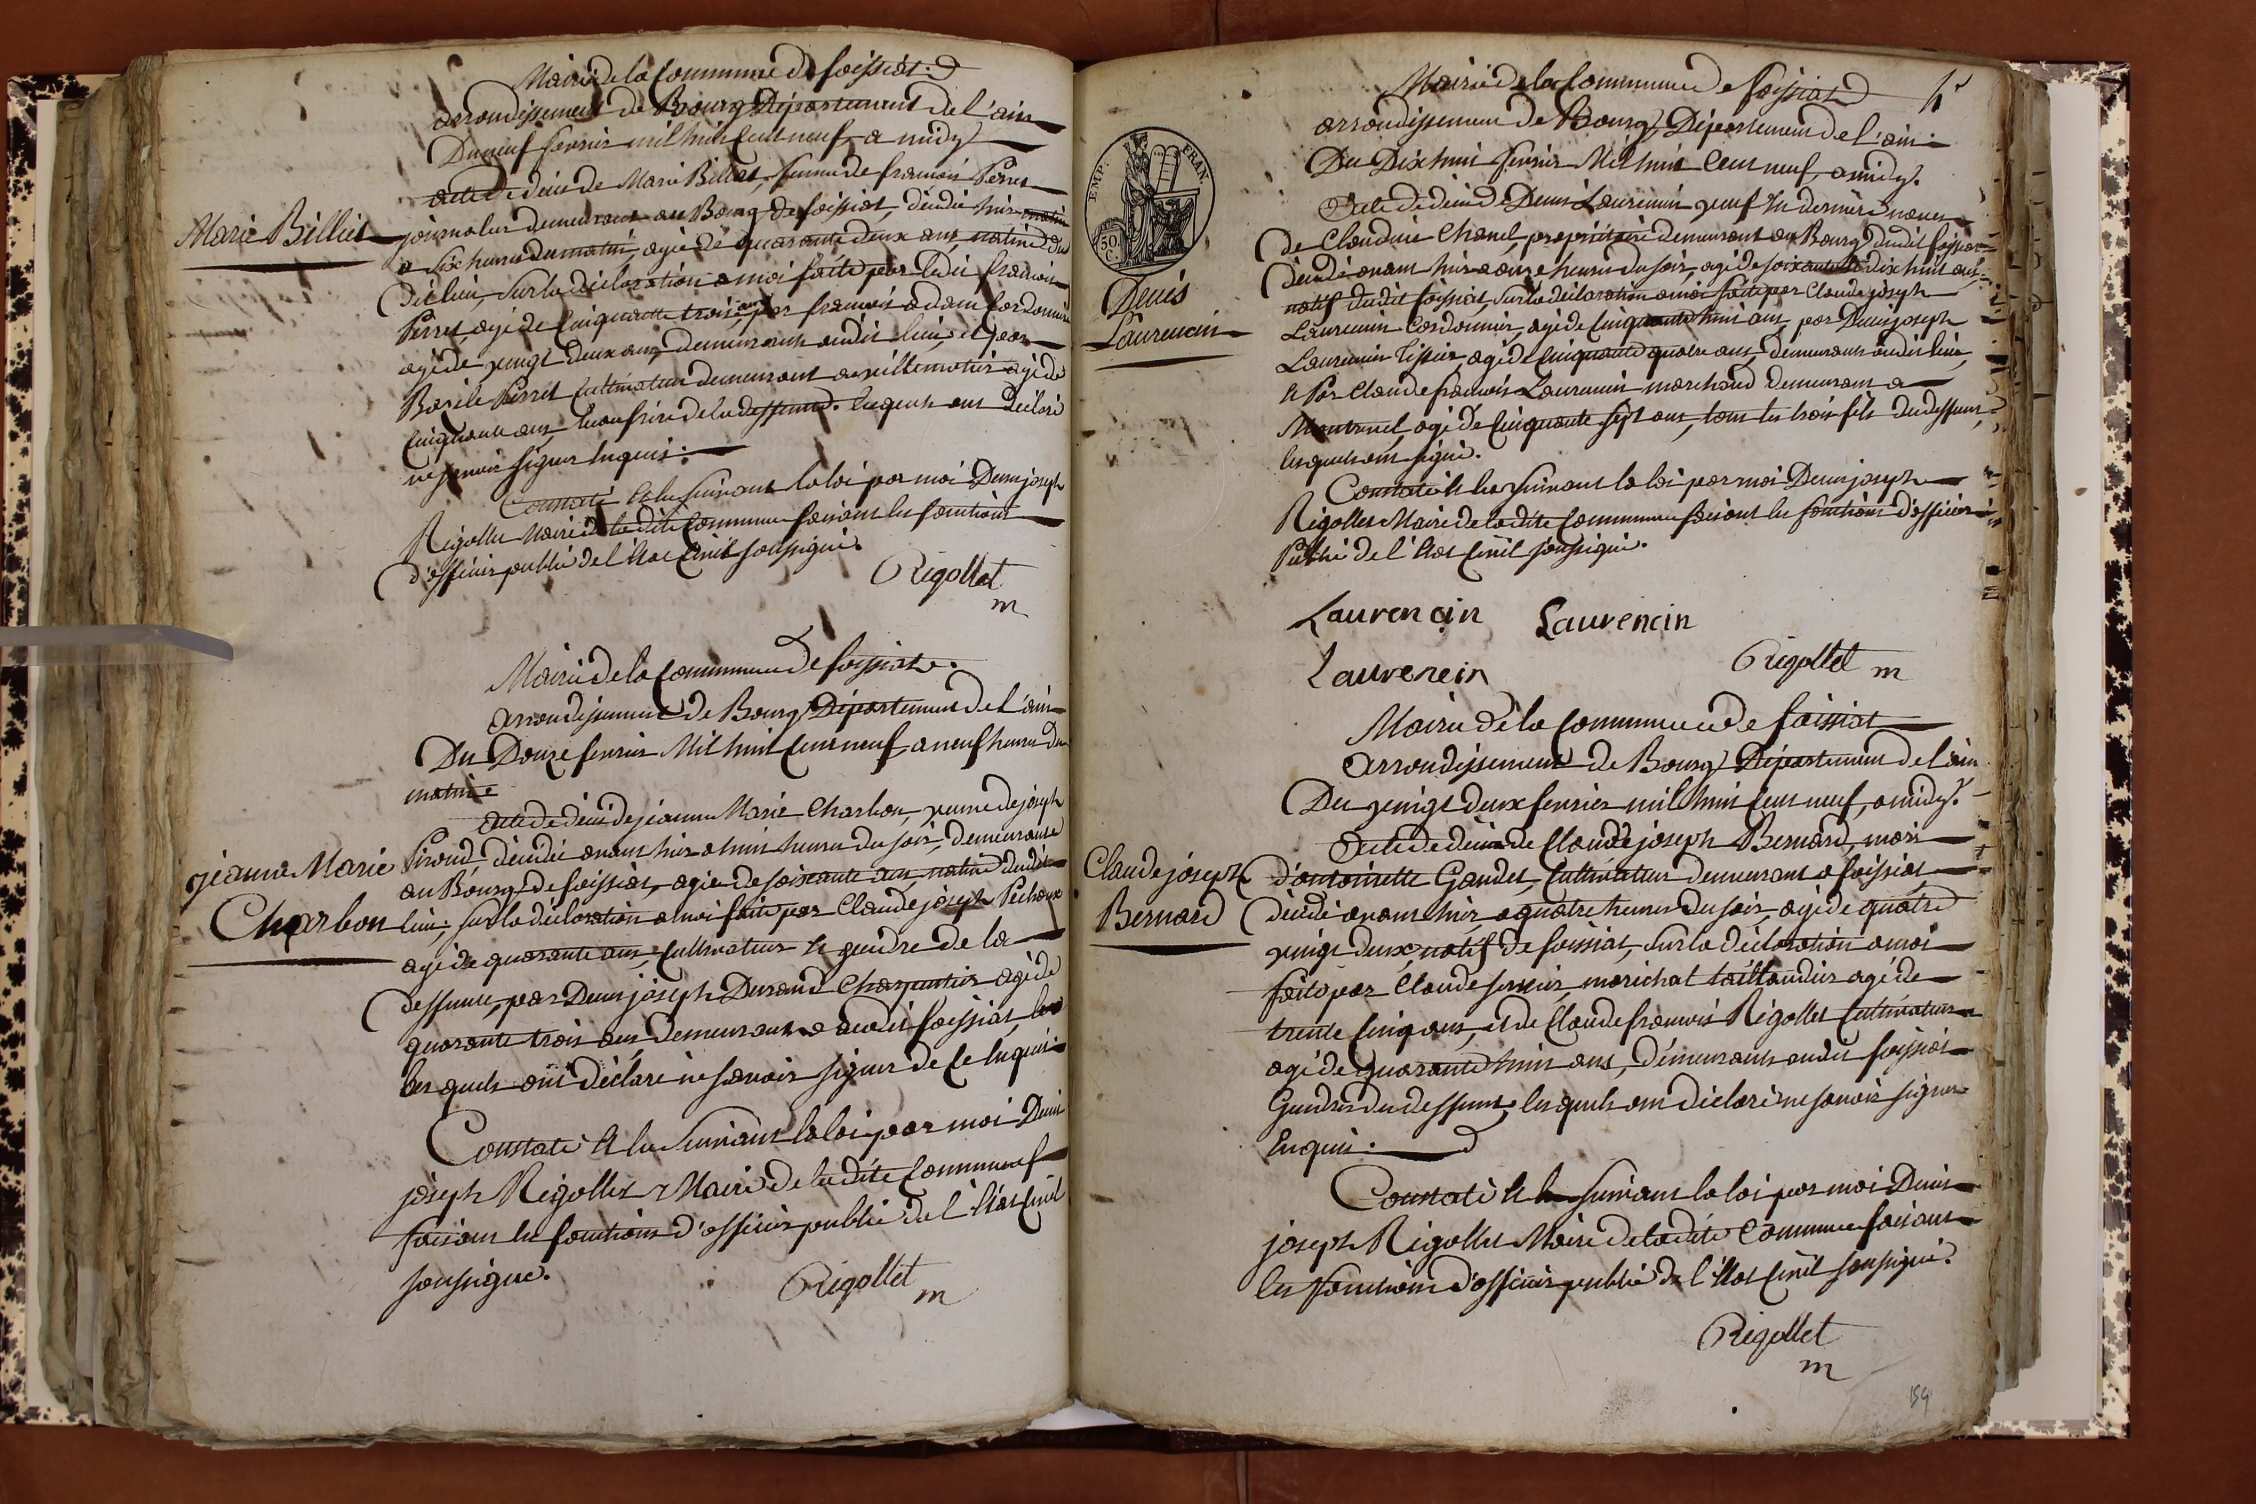 Mairie de la Commune de foissiat
arrondissement de Bourg Département de l'ain
Du neuf fevrier mil huit Cent neuf a midy
acte de décés de Marie Billiet, femme de francois Perret
Marie Billiet
journalier demeurant au Bourg de foissiat, décédée hier
a six heures du matin, agée de quarante deux ans, native du
dit lieu, sur la déclaration a moi faite par ledit francois
Perret, agé de Cinquante trois ans, par francois adam Cordonnier
agé de vingt deux ans demeurants audit lieu, et par
Basile Perret Cultivateur demeurant a villemotier agé de
Cinquante ans, beaufrère de la deffunte. lesquels ont déclaré
ne savoir signer Enquis.
Constaté Et lu suivant la loi par moi Denis joseph
Rigollet Maire de ladite Commune faisant les fonctions
d'officier public de l'état Civil soussigné.
Rigollet
m
Mairie de la Commune de foissiat.
arrondissement de Bourg Département de l'ain
Du Douze fevrier Mil huit Cent neuf a neuf heures du
matin
acte de décés de jéanne Marie Charbon, veuve de joseph
jéanne Marie
Charbon
Piroud, décédée avant hier a huit heures du soir, demeurante
au Bourg de foissiat, agée de soixante ans, native dudit
lieu, sur la déclaration a moi faite par Claude joseph Pechoux
agé de quarante ans, Cultivateur et gendre de la
deffunte, par Denis joseph Durand Charpentier agé de
quarante trois ans demeurants a audit foissiat, les
lesquels ont déclaré ne savoir signer de Ce Enquis.
Constaté Et lu suivant la loi par moi Denis
joseph Rigollet Maire de ladite Commune
faisant les fonctions d'officier public de l'état Civil
soussigné.
Rigollet
m
Mairie de la Commune de foissiat
arrondissement de Bourg Département de l'ain
Du Dix huit fevrier Mil huit Cent neuf, a midy.
EMP. FRAN
50.
C.
acte de décés de Denis Laurencin veuf En derniere noces
de Claudine Chanel, propriétaire demeurant au Bourg dudit foissiat
Denis
Laurencin
décédé avant hier a onze heures du soir, agé de soixante dix huit ans,
natif dudit foissiat, sur la déclaration a moi faite par Claude joseph
Laurencin Cordonnier, agé de Cinquante huit ans, par Denis joseph
Laurencin Tissier, agé de Cinquante quatre ans, demeurants audit lieu,
Et Par Claude francois Laurencin marchand demeurant a
Montrevel, agé de Cinquante sept ans, tous les trois fils du deffunt,
lesquels ont signé.
Constaté Et lu suivant la loi par moi Denis joseph
Rigollet Maire de ladite Commune faisant les fonctions d'officier
Public de l'état Civil soussigné.
Laurencin Laurencin
Laurencin Rigollet m
Mairie de la Commune de foissiat
arrondissement de Bourg Département de l'ain
Du vingt deux fevrier mil huit Cent neuf, a midy.
acte de décés de Claude joseph Bernard, mari
Claude joseph
Bernard
d'antoinette Gaudet, Cultivateur demeurant a foissiat
décédé avant hier, a quatre heures du soir, agé de quatre
vingt deux, natif de foissiat, sur la déclaration a moi
faite par Claude marichal taillandier agé de
trente Cinq ans, et de Claude francois Rigollet Cultivateur
agé de quarante huit ans, démeurants audit foissiat
Gendres du deffunt, lesquels ont déclaré ne savoir signer
Enquis.
Constaté Et lu suivant la loi par moi Denis
joseph Rigollet Maire de ladite Commune faisant
les fonctions d'officier public de l'état Civil soussigné.
Rigollet
m